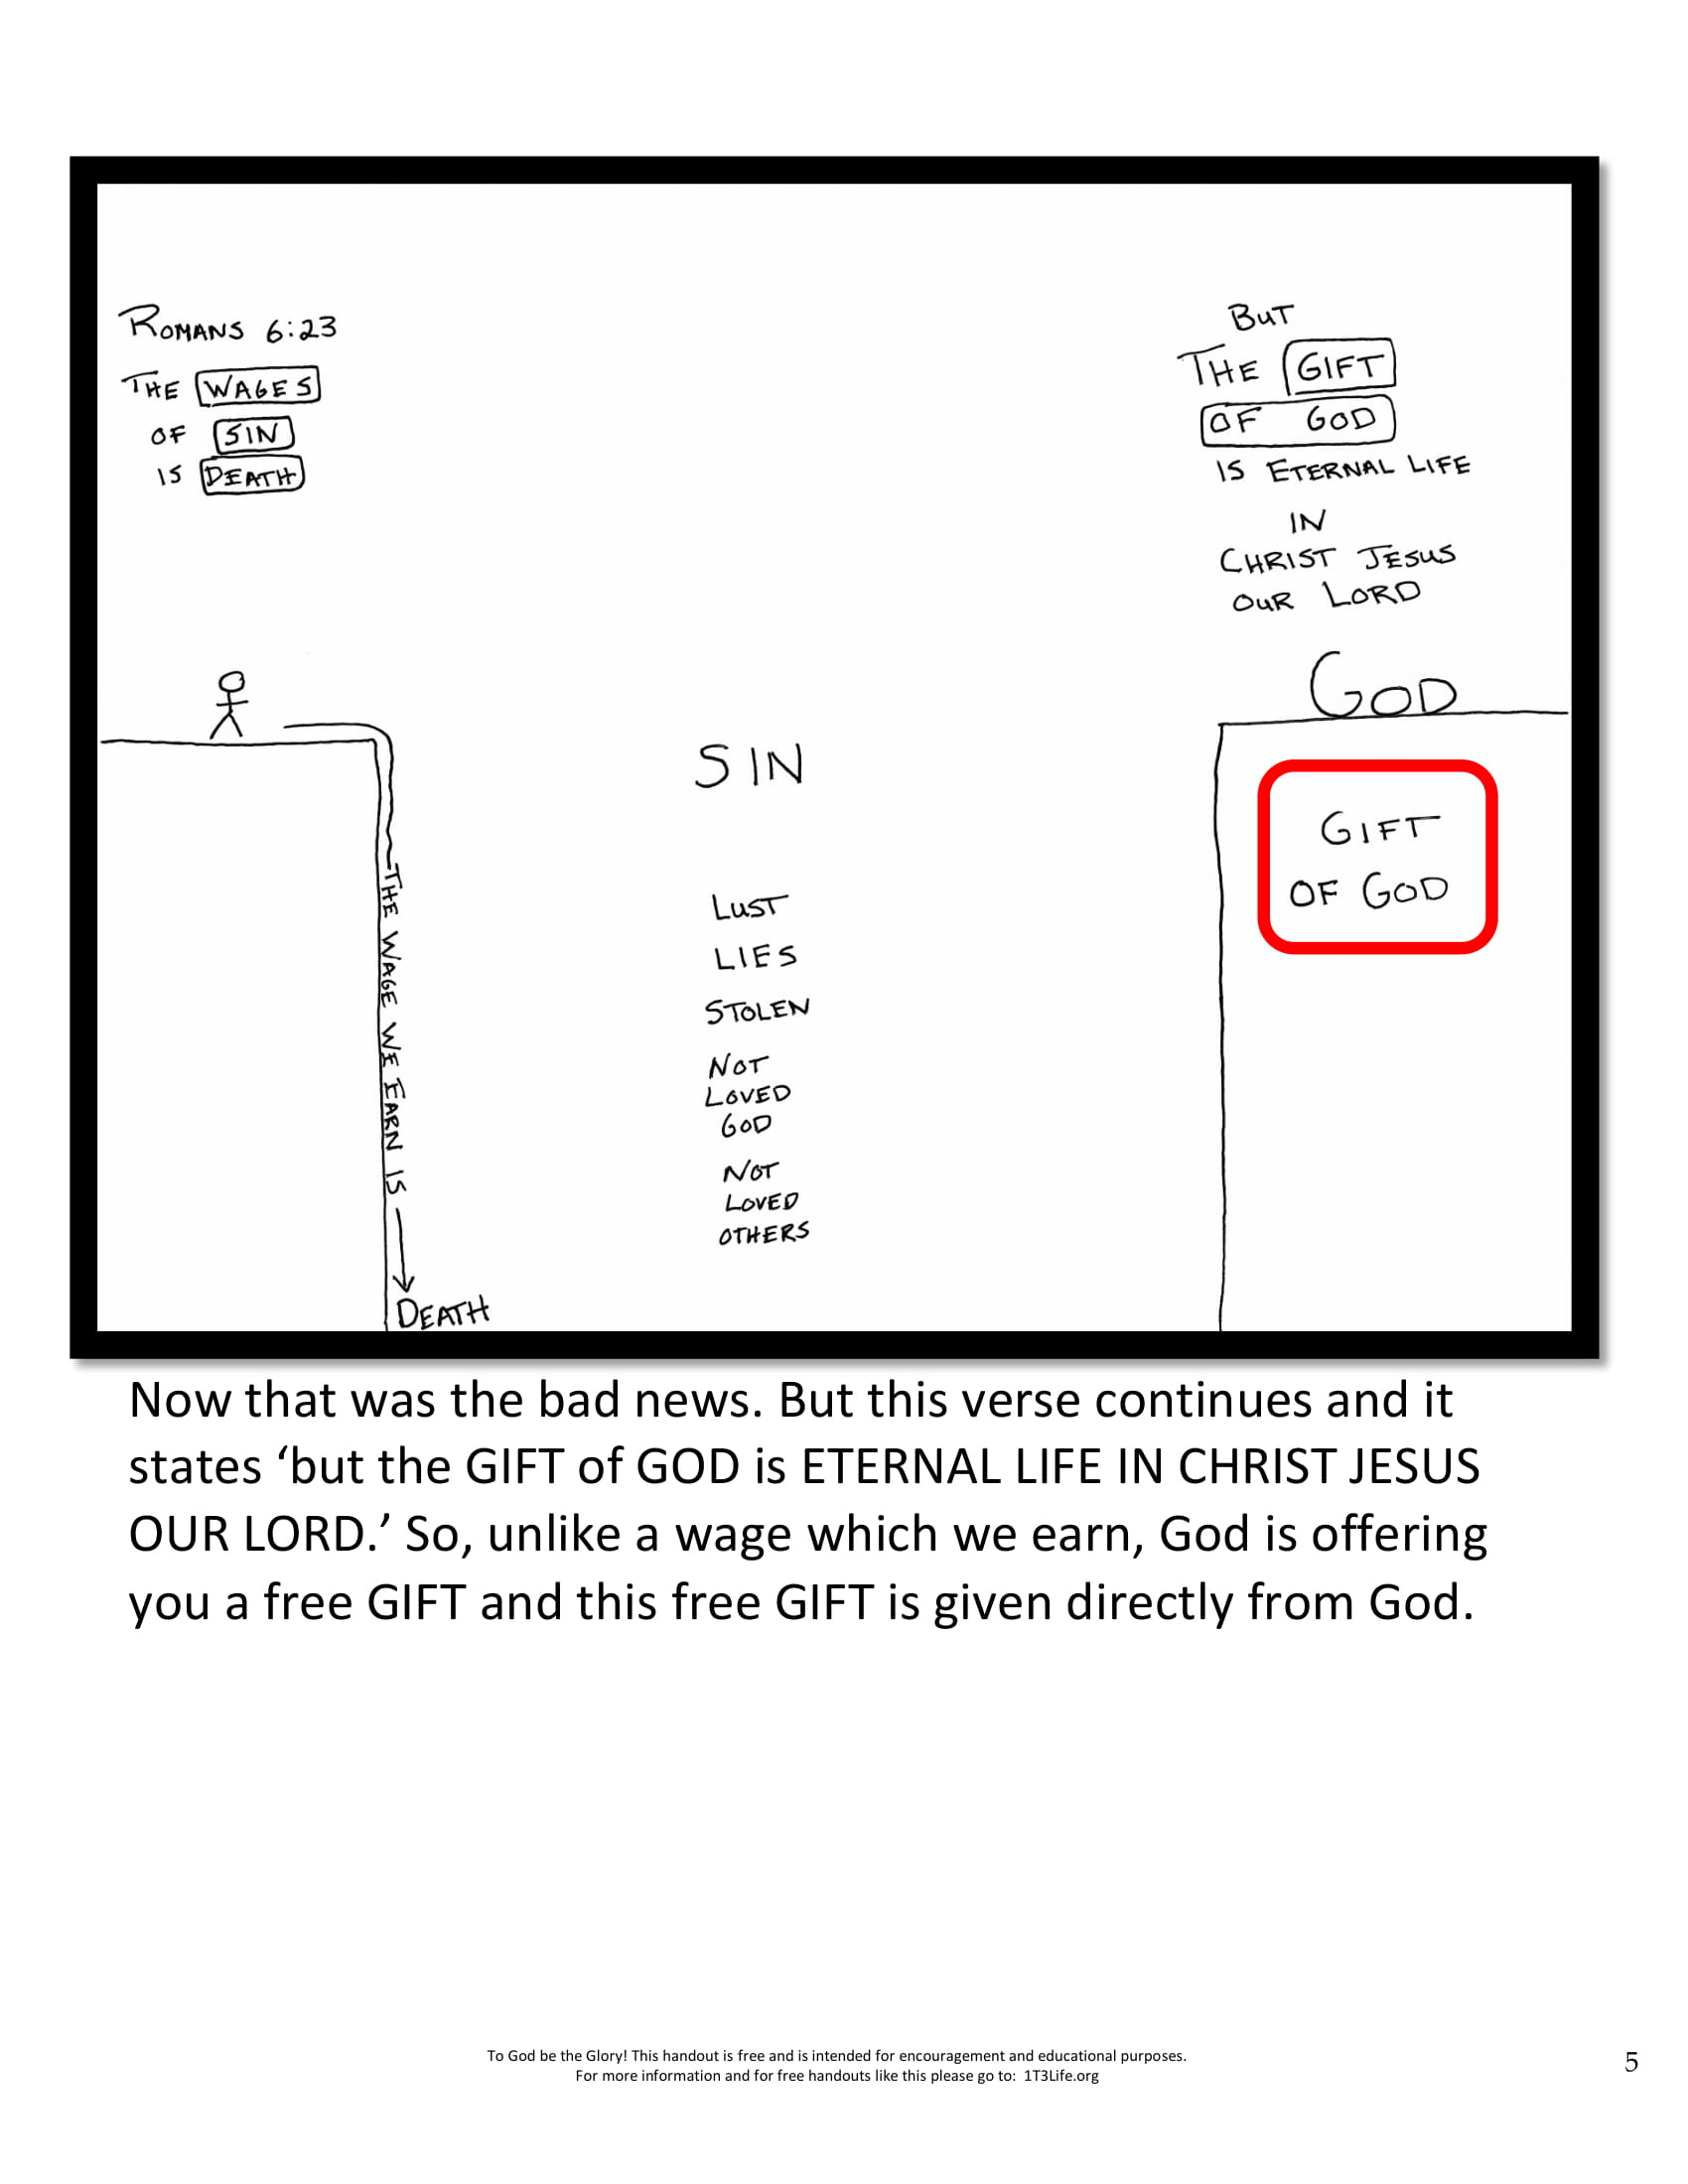 Romans 6:23
The WAGES
OF SIN
IS DEATH
BUT
THE GIFT
OF GOD
IS ETERNAL LIFE
IN
CHRIST JESUS
OUR LORD
GOD
SIN
GIFT
OF GOD
LUST
LIES
STOLEN
NOT
LOVED
GOD
NOT
LOVED
OTHERS
THE WAGE WE EARN IS
DEATH
Now that was the bad news. But this verse continues and it
states ‘but the GIFT of GOD is ETERNAL LIFE IN CHRIST JESUS
OUR LORD.’ So, unlike a wage which we earn, God is offering
you a free GIFT and this free GIFT is given directly from God.
To God be the Glory! This handout is free and is intended for encouragement and educational purposes.
For more information and for free handouts like this please go to: 1T3Life.org
5